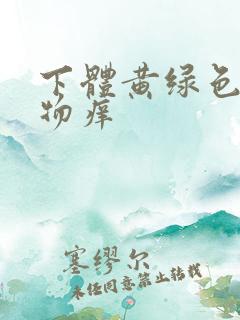 下體黄绿色
物痒
塞缪尔
未经同意禁止转载